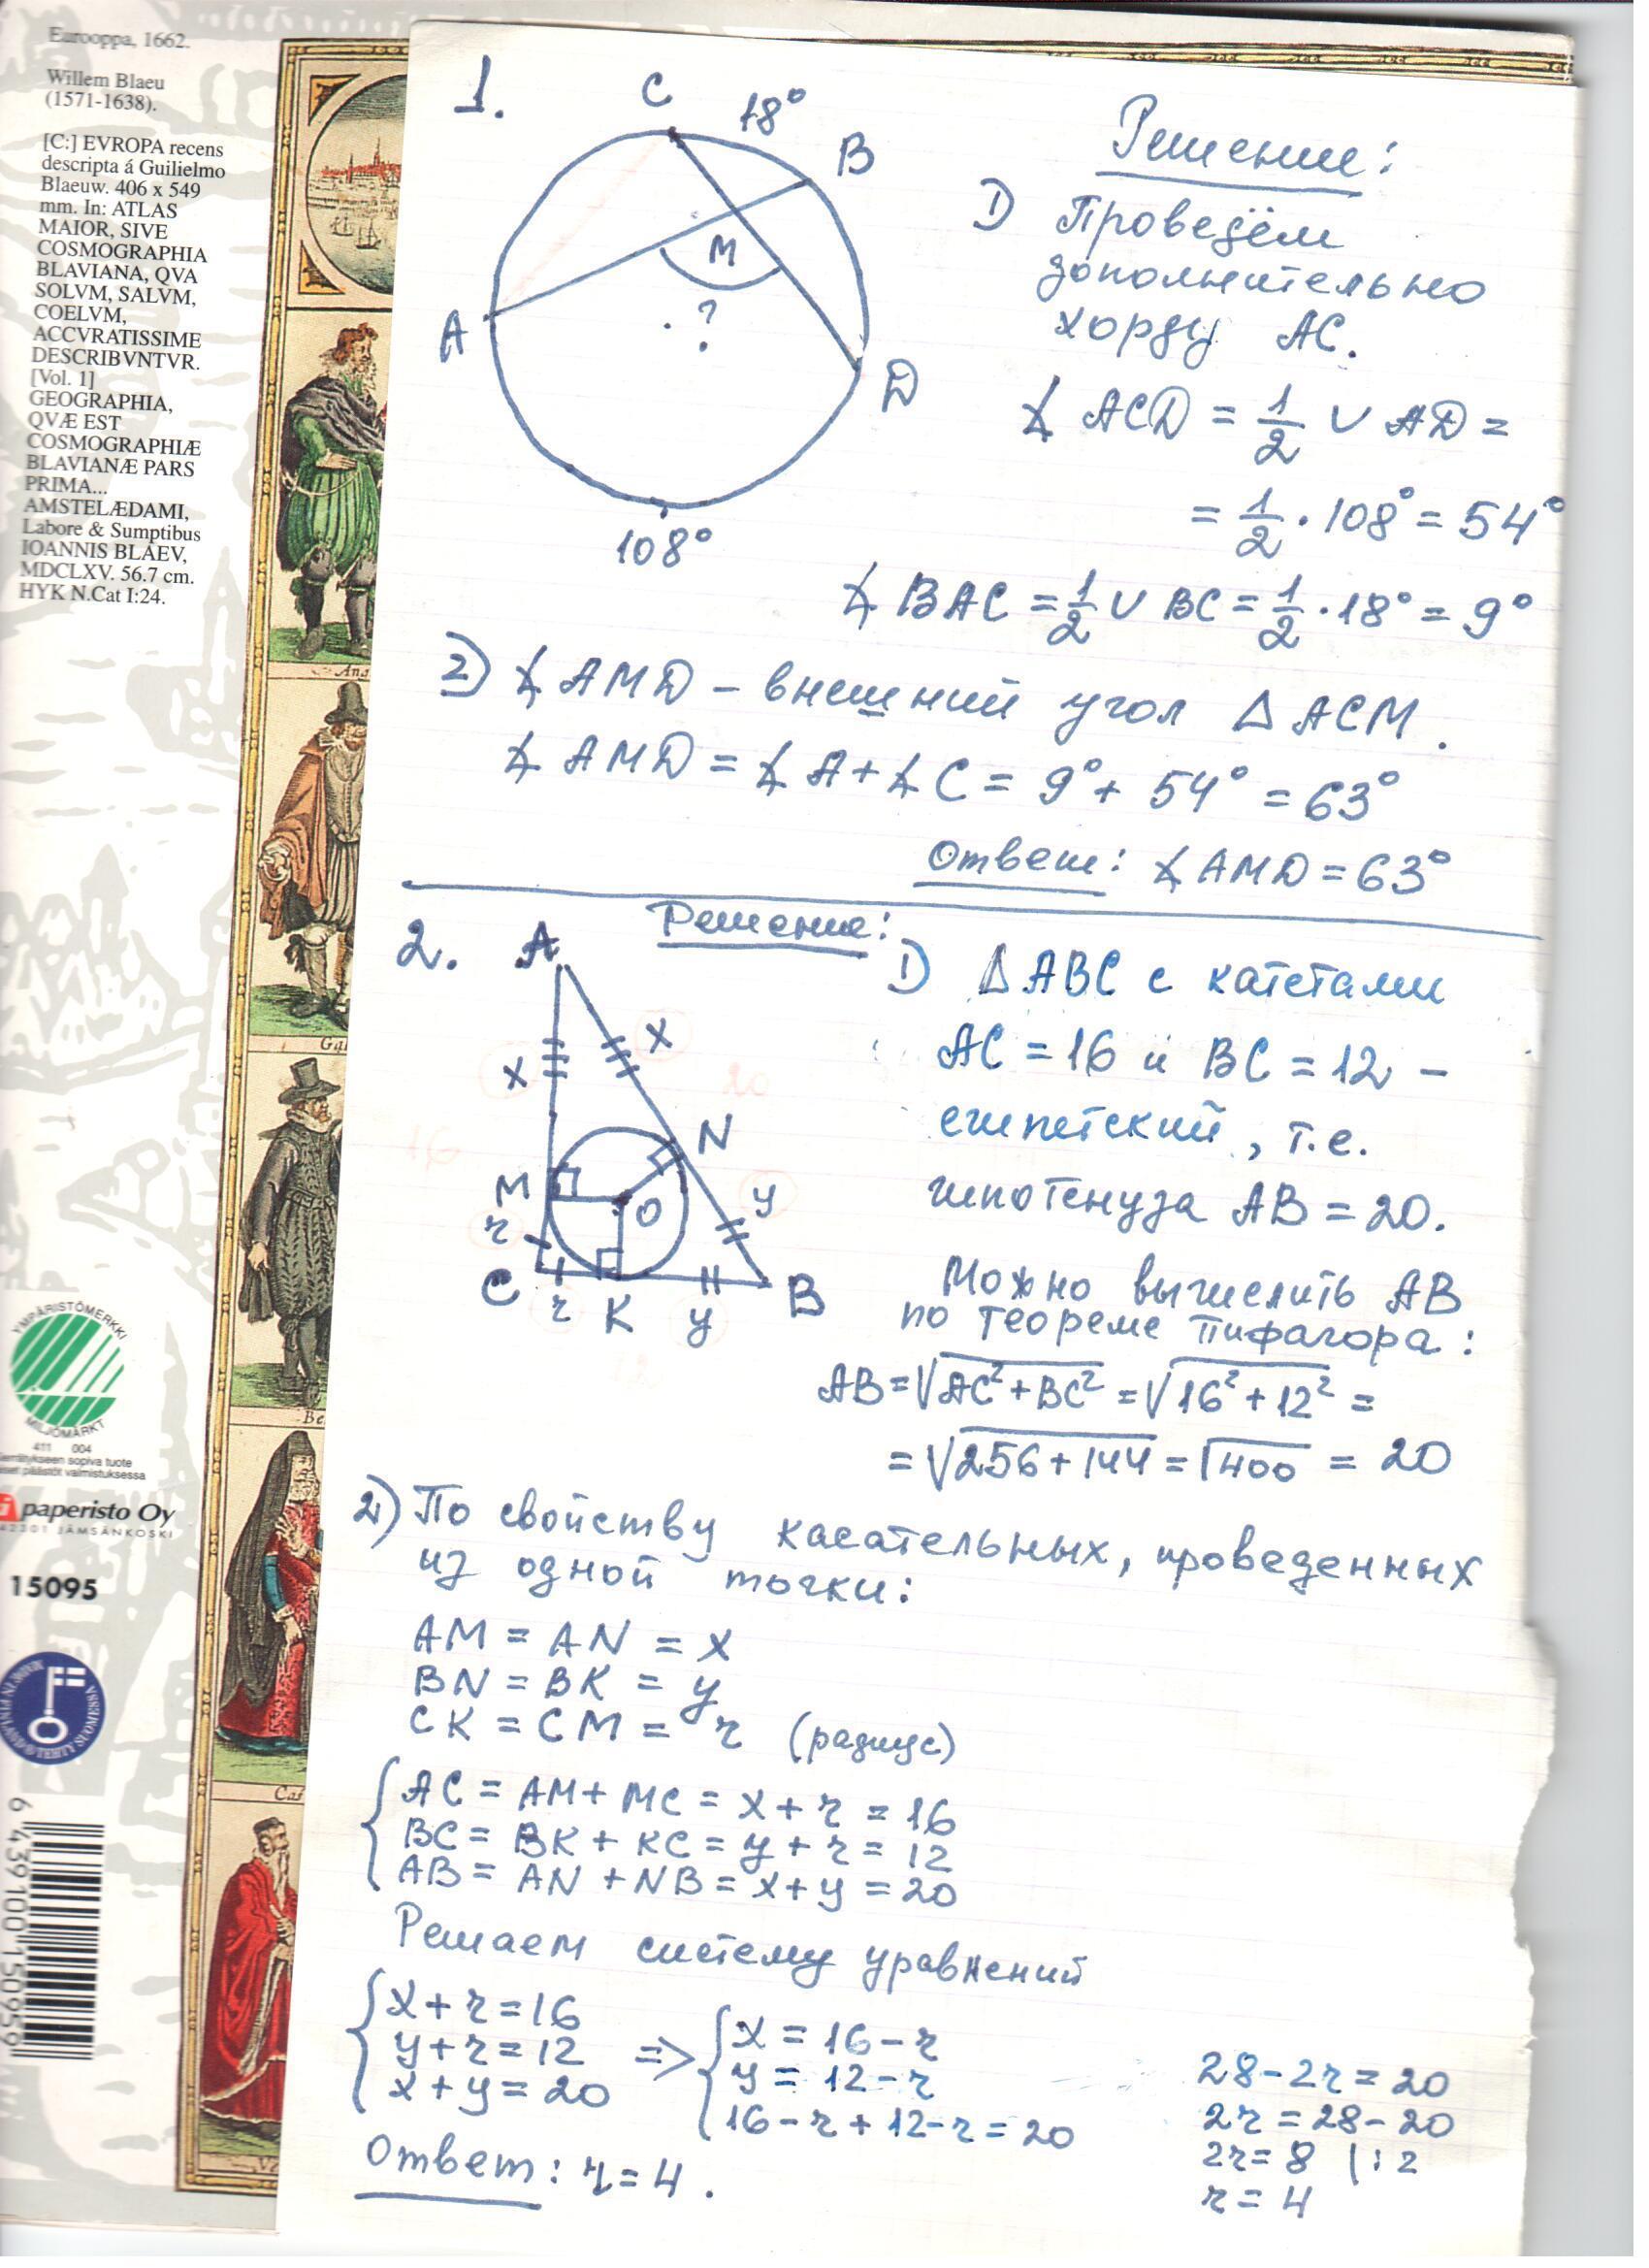 Eurooppa, 1662.
Willem Blaeu
(1571-1638).
[C:] EVROPA recens
descripta á Guilielmo
Blaeuw. 406 x 549
mm. In: ATLAS
MAIOR, SIVE
COSMOGRAPHIA
BLAVIANA, QVA
SOLVM, SALVM,
COELVM,
ACCVRATISSIME
DESCRIBVNTVR.
[Vol. 1]
GEOGRAPHIA,
QVÆ EST
COSMOGRAPHIÆ
BLAVIANÆ PARS
PRIMA...
AMSTELÆDAMI,
Labore & Sumptibus
IOANNIS BLAEV,
MDCLXV. 56.7 cm.
HYK N.Cat I:24.
YMPÄRISTÖMERKKI
MILJÖMÄRKT
411 004
paperisto Oy
42301 JÄMSÄNKOSKI
15095
6 439100 150959
1.
C 18°
B
M
A
?
D
108°
Решение:
1) Проведём
дополнительно
хорду AC.
∡ ACD = 1/2 ∪ AD =
= 1/2 · 108° = 54°
∡ BAC = 1/2 ∪ BC = 1/2 · 18° = 9°
2) ∡ AMD – внешний угол Δ ACM.
∡ AMD = ∡ A + ∡ C = 9° + 54° = 63°
Ответ: ∡ AMD = 63°
2.
Решение:
A
x
x
20
16
N
M
O
y
r
C
r
K
y
B
12
1) Δ ABC с катетами
AC = 16 и BC = 12 –
египетский, т.е.
гипотенуза AB = 20.
Можно вычислить AB
по теореме Пифагора:
AB = √AC² + BC² = √16² + 12² =
= √256 + 144 = √400 = 20
2) По свойству касательных, проведенных
из одной точки:
AM = AN = x
BN = BK = y
CK = CM = r (радиус)
{ AC = AM + MC = x + r = 16
BC = BK + KC = y + r = 12
AB = AN + NB = x + y = 20
Решаем систему уравнений
{ x + r = 16
y + r = 12
x + y = 20
=> { x = 16 – r
y = 12 – r
16 – r + 12 – r = 20
28 – 2r = 20
2r = 28 – 20
2r = 8 | : 2
r = 4
Ответ: r = 4.